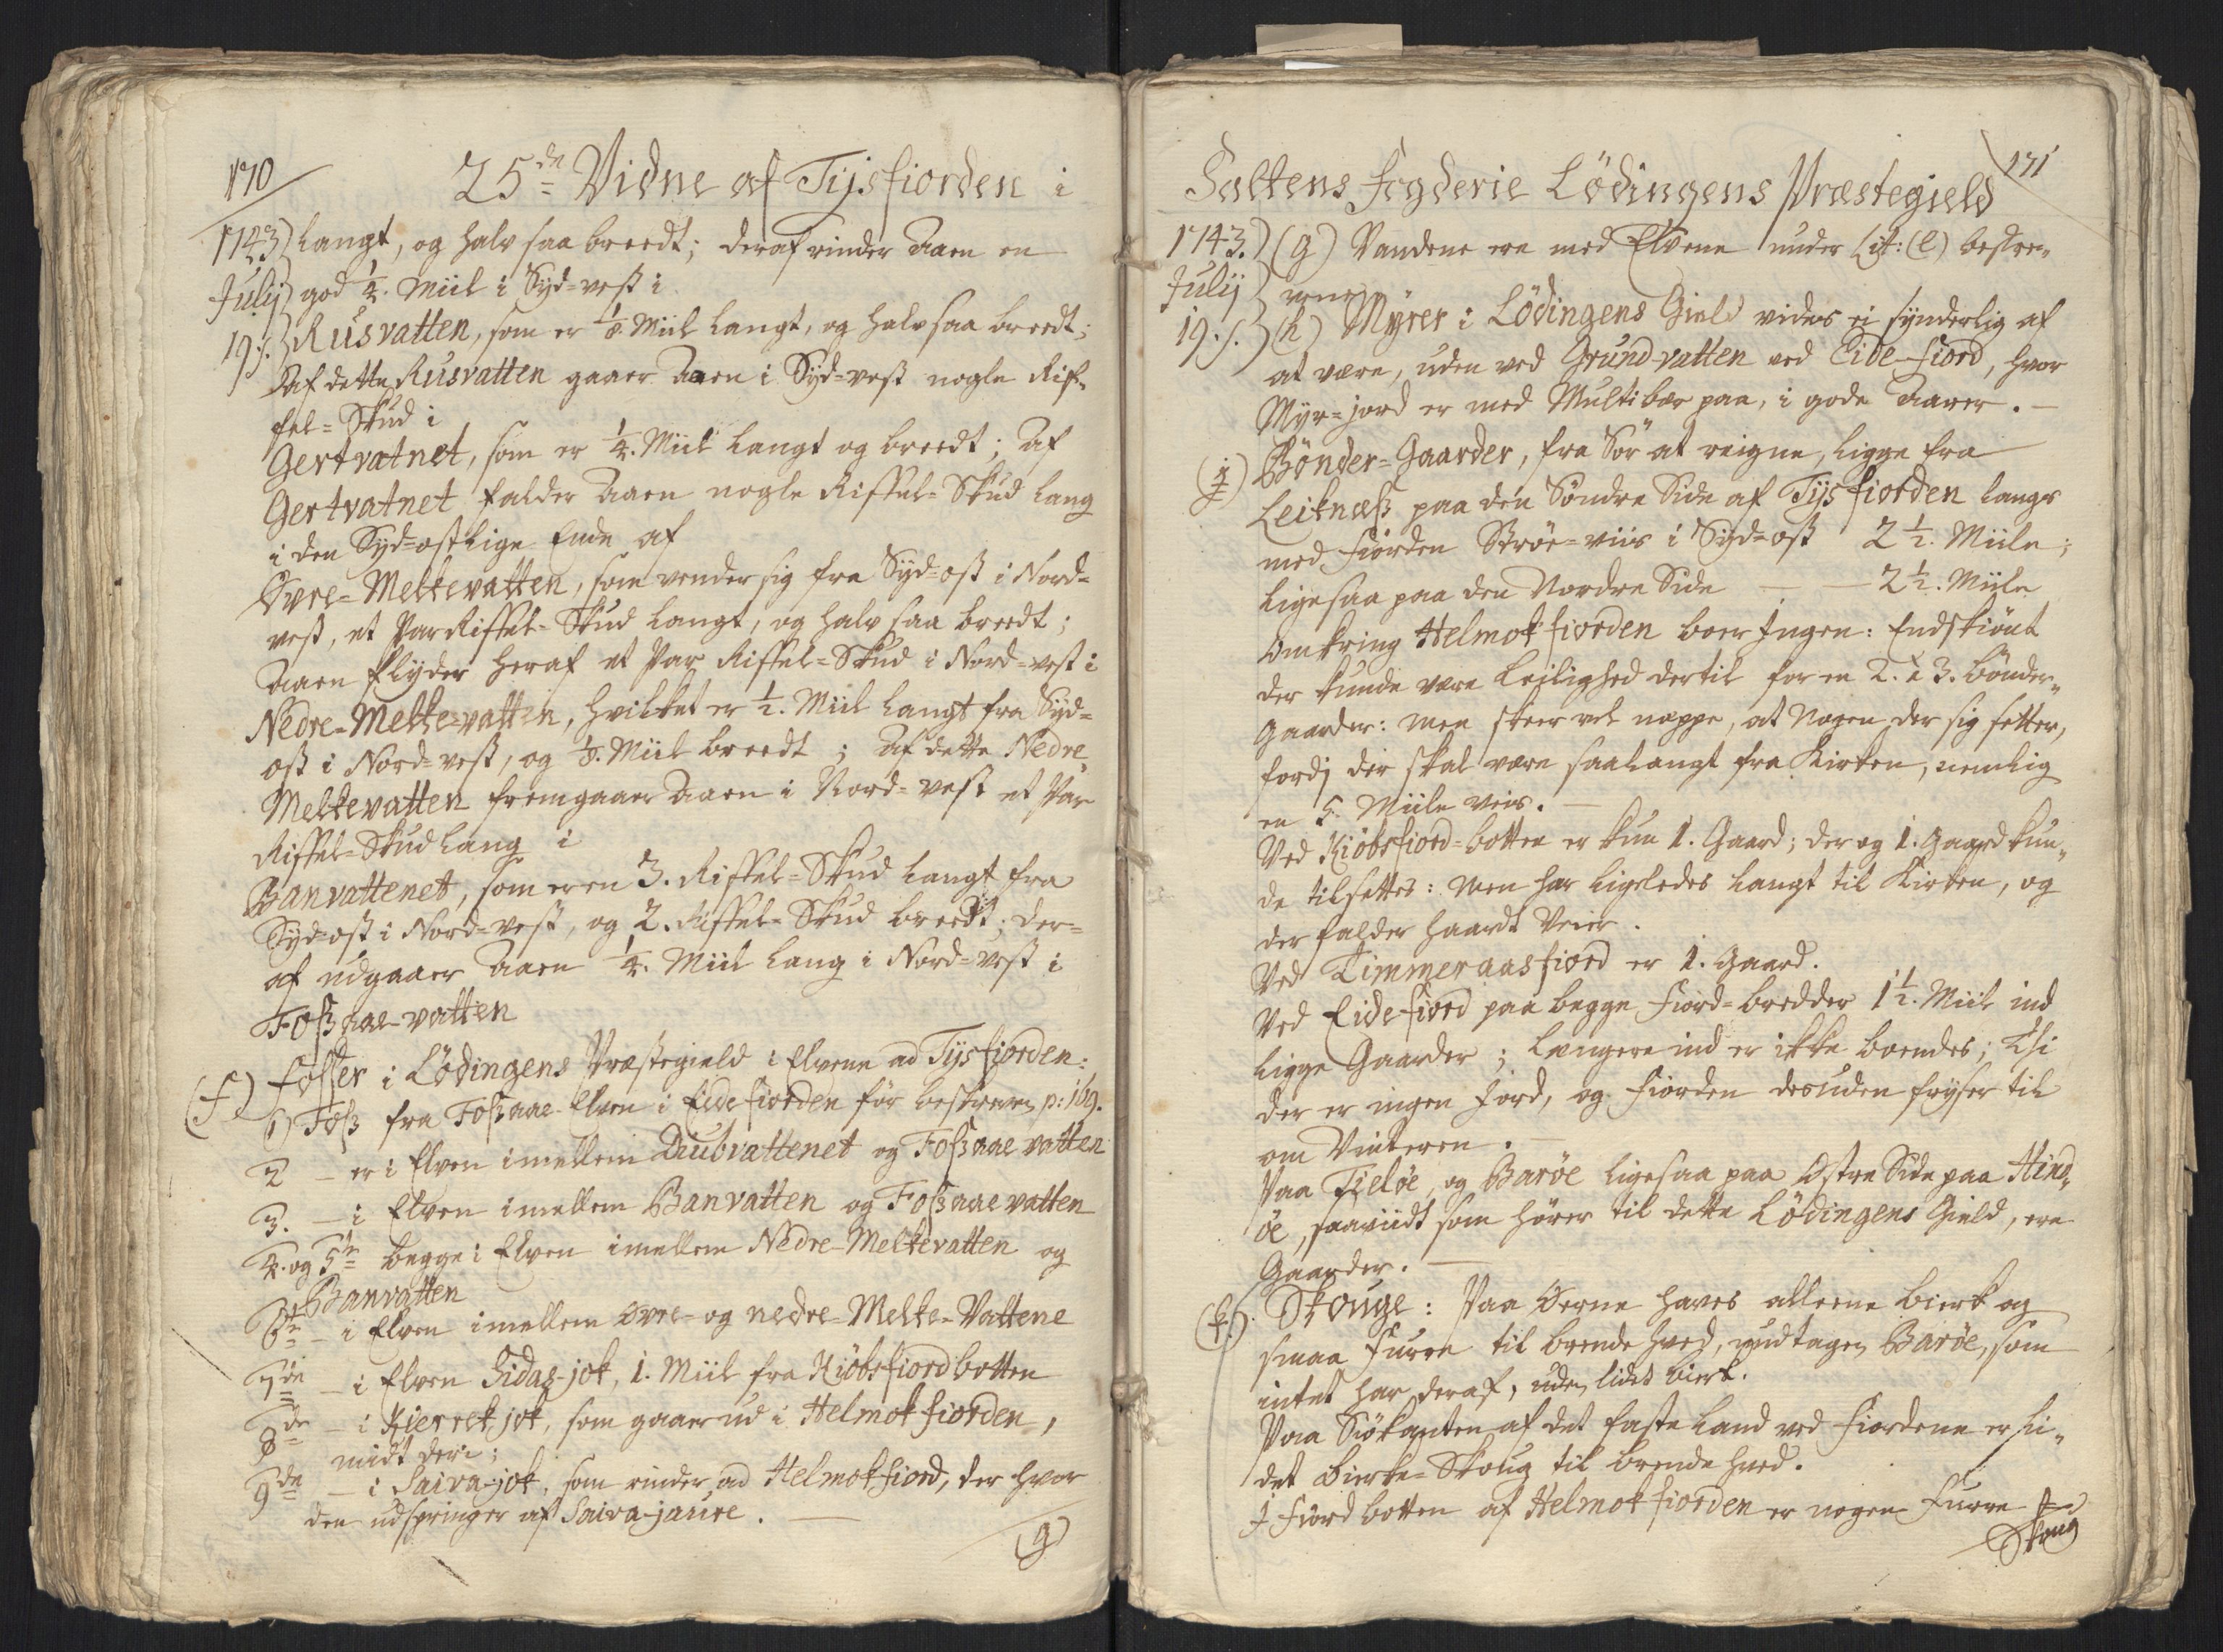 170
25de Vidne af Tijsfiorden i
1743) langt, og halv saa breedt; deraf rinder Aaen en
Julij) god 1/4. Miil i Syd=vest i
19. s.) Rusvatten, som er 1/8. Miil langt, og halv saa breedt;
Af dette Rusvatten gaaer Aaen i Syd=vest nogle Rif-
fel=Skud i
Gertvatnet, som er 1/4. Miil langt og breedt; Af
Gertvatnet falder Aaen nogle Riffel=Skud lang
i den Syd=ostlige Ende af
Øvre=Melkevatten, som vender sig fra Syd=ost i Nord=
vest, et Par Riffel=Skud langt, og halv saa breedt;
Aaen flyder heraf et Par Riffel=Skud i Nord=vest i
Nedre=Melke=vatten, hvilket er 1/2. Miil langt fra Syd=
ost i Nord=vest, og 1/8. Miil breedt; Af dette Nedre
Melkevatten fremgaaer Aaen i Nord=vest et Par
Riffel=Skud lang i
Banvattenet, som er en 3. Riffel=Skud langt fra
Syd=ost i Nord=vest, og 2. Riffel=Skud breedt; der=
af udgaaer Aaen 1/4. Miil lang i Nord=vest i
Foßaae-vatten
(f) Fosser i Lødingens Præstegield i Elvene ad Tijsfjorden:
1) Foß fra Foßaae-Elven i Eidefiorden før beskreven p: 169.
2 – er i Elven imellem Diubvattenet og Foßaae vatten
3. – i Elven imellem Banvatten og Foßaae vatten
4. og 5te begge i Elven imellem Nedre-Melkevatten og
Banvatten
6te – i Elven imellem øvre- og nedre-Melke-Vattene
7de – i Elven Sidas-jok, 1. Miil fra Kiøbsfiordbotten
8de – i Kierrek jok, som gaaer ud i Helmokfiorden,
midt deri;
9de – i Saiva-jok, som rinder ad Helmokfiord, der hvor
den udspringer af Saiva-jaure.
(g)
171
Saltens Fogderie Lødingens Præstegield
1743.) (g) Vandene ere med Elvene under Lit: (e) beskre-
Julij) vene
19. s.) (h) Myrer i Lødingens Gield vides ei synderlig af
at være, uden ved Grund-vatten ved Eide-fiord, hvor
Myr=jord er med Multibær paa, i gode Aarer.
(i) Bønder=Gaarder, fra Sør at reigne, ligge fra
Leiknæß paa den Søndre Side af Tijsfiorden langs
med Fiorden Strøe=viis i Syd=ost 2 1/2. Miile;
ligesaa paa den Nordre Side — — 2 1/2. Miile
Omkring Helmokfiorden boer Ingen: Endskiønt
der kunde være Leilighed dertil for en 2. à 3. Bønder-
Gaarder: Men skeer vel neppe, at Nogen der sig setter,
fordj der skal være saa langt fra Kirken, nemlig
en 5. Miile veis.
Ved Kiøbsfiord=botten er kun 1. Gaard; der og 1. Gaard kun-
de tilsettes: Men har ligeledes langt til Kirken, og
der falder haardt Veir.
Ved Timmeraasfiord er 1. Gaard.
Ved Eidefiord paa begge Fiord=bredder 1 1/2. Miil ind
ligge Gaarder; længere ind er ikke boendes; Thi
der er ingen Jord, og Fiorden desuden fryser til
om Vinteren.
Paa Tieløe, og Barøe ligesaa paa Østre Side paa Hind-
øe, saaviidt som hører til dette Lødingens Gield, ere
Gaarder.
(k) Skouge: Paa Øerne haves alleene Bierk og
smaa Furre til brende hved, undtagen Barøe, som
intet har deraf, uden lidet Bierk.
Paa Siøkanten af det faste Land ved Fiordene er li-
det Bierke=Skoug til brende hved.
I Fiordbotten af Helmokfiorden er nogen Furre
Skoug